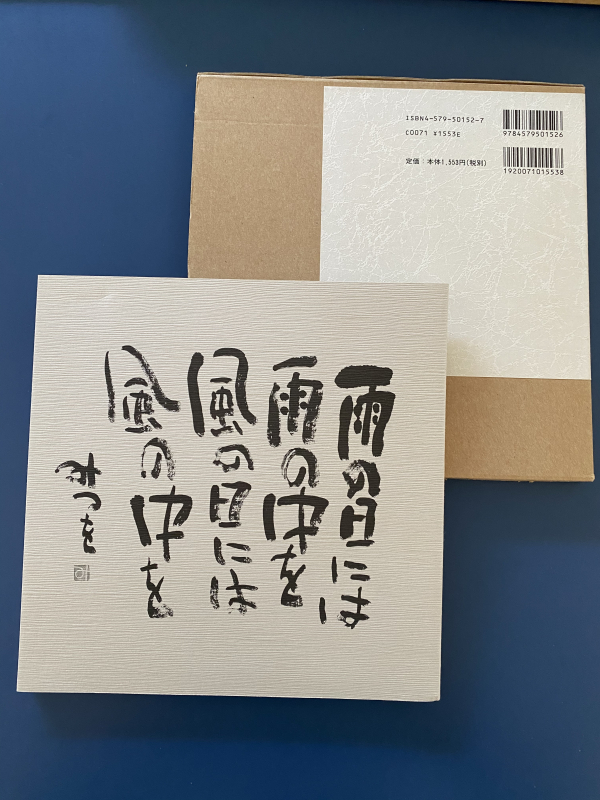 ISBN4-579-50152-7
C0071 ¥1553E
定価：本体1,553円(税別)
9784579501526
1920071015538
雨の日には
雨の中を
風の日には
風の中を
みつを